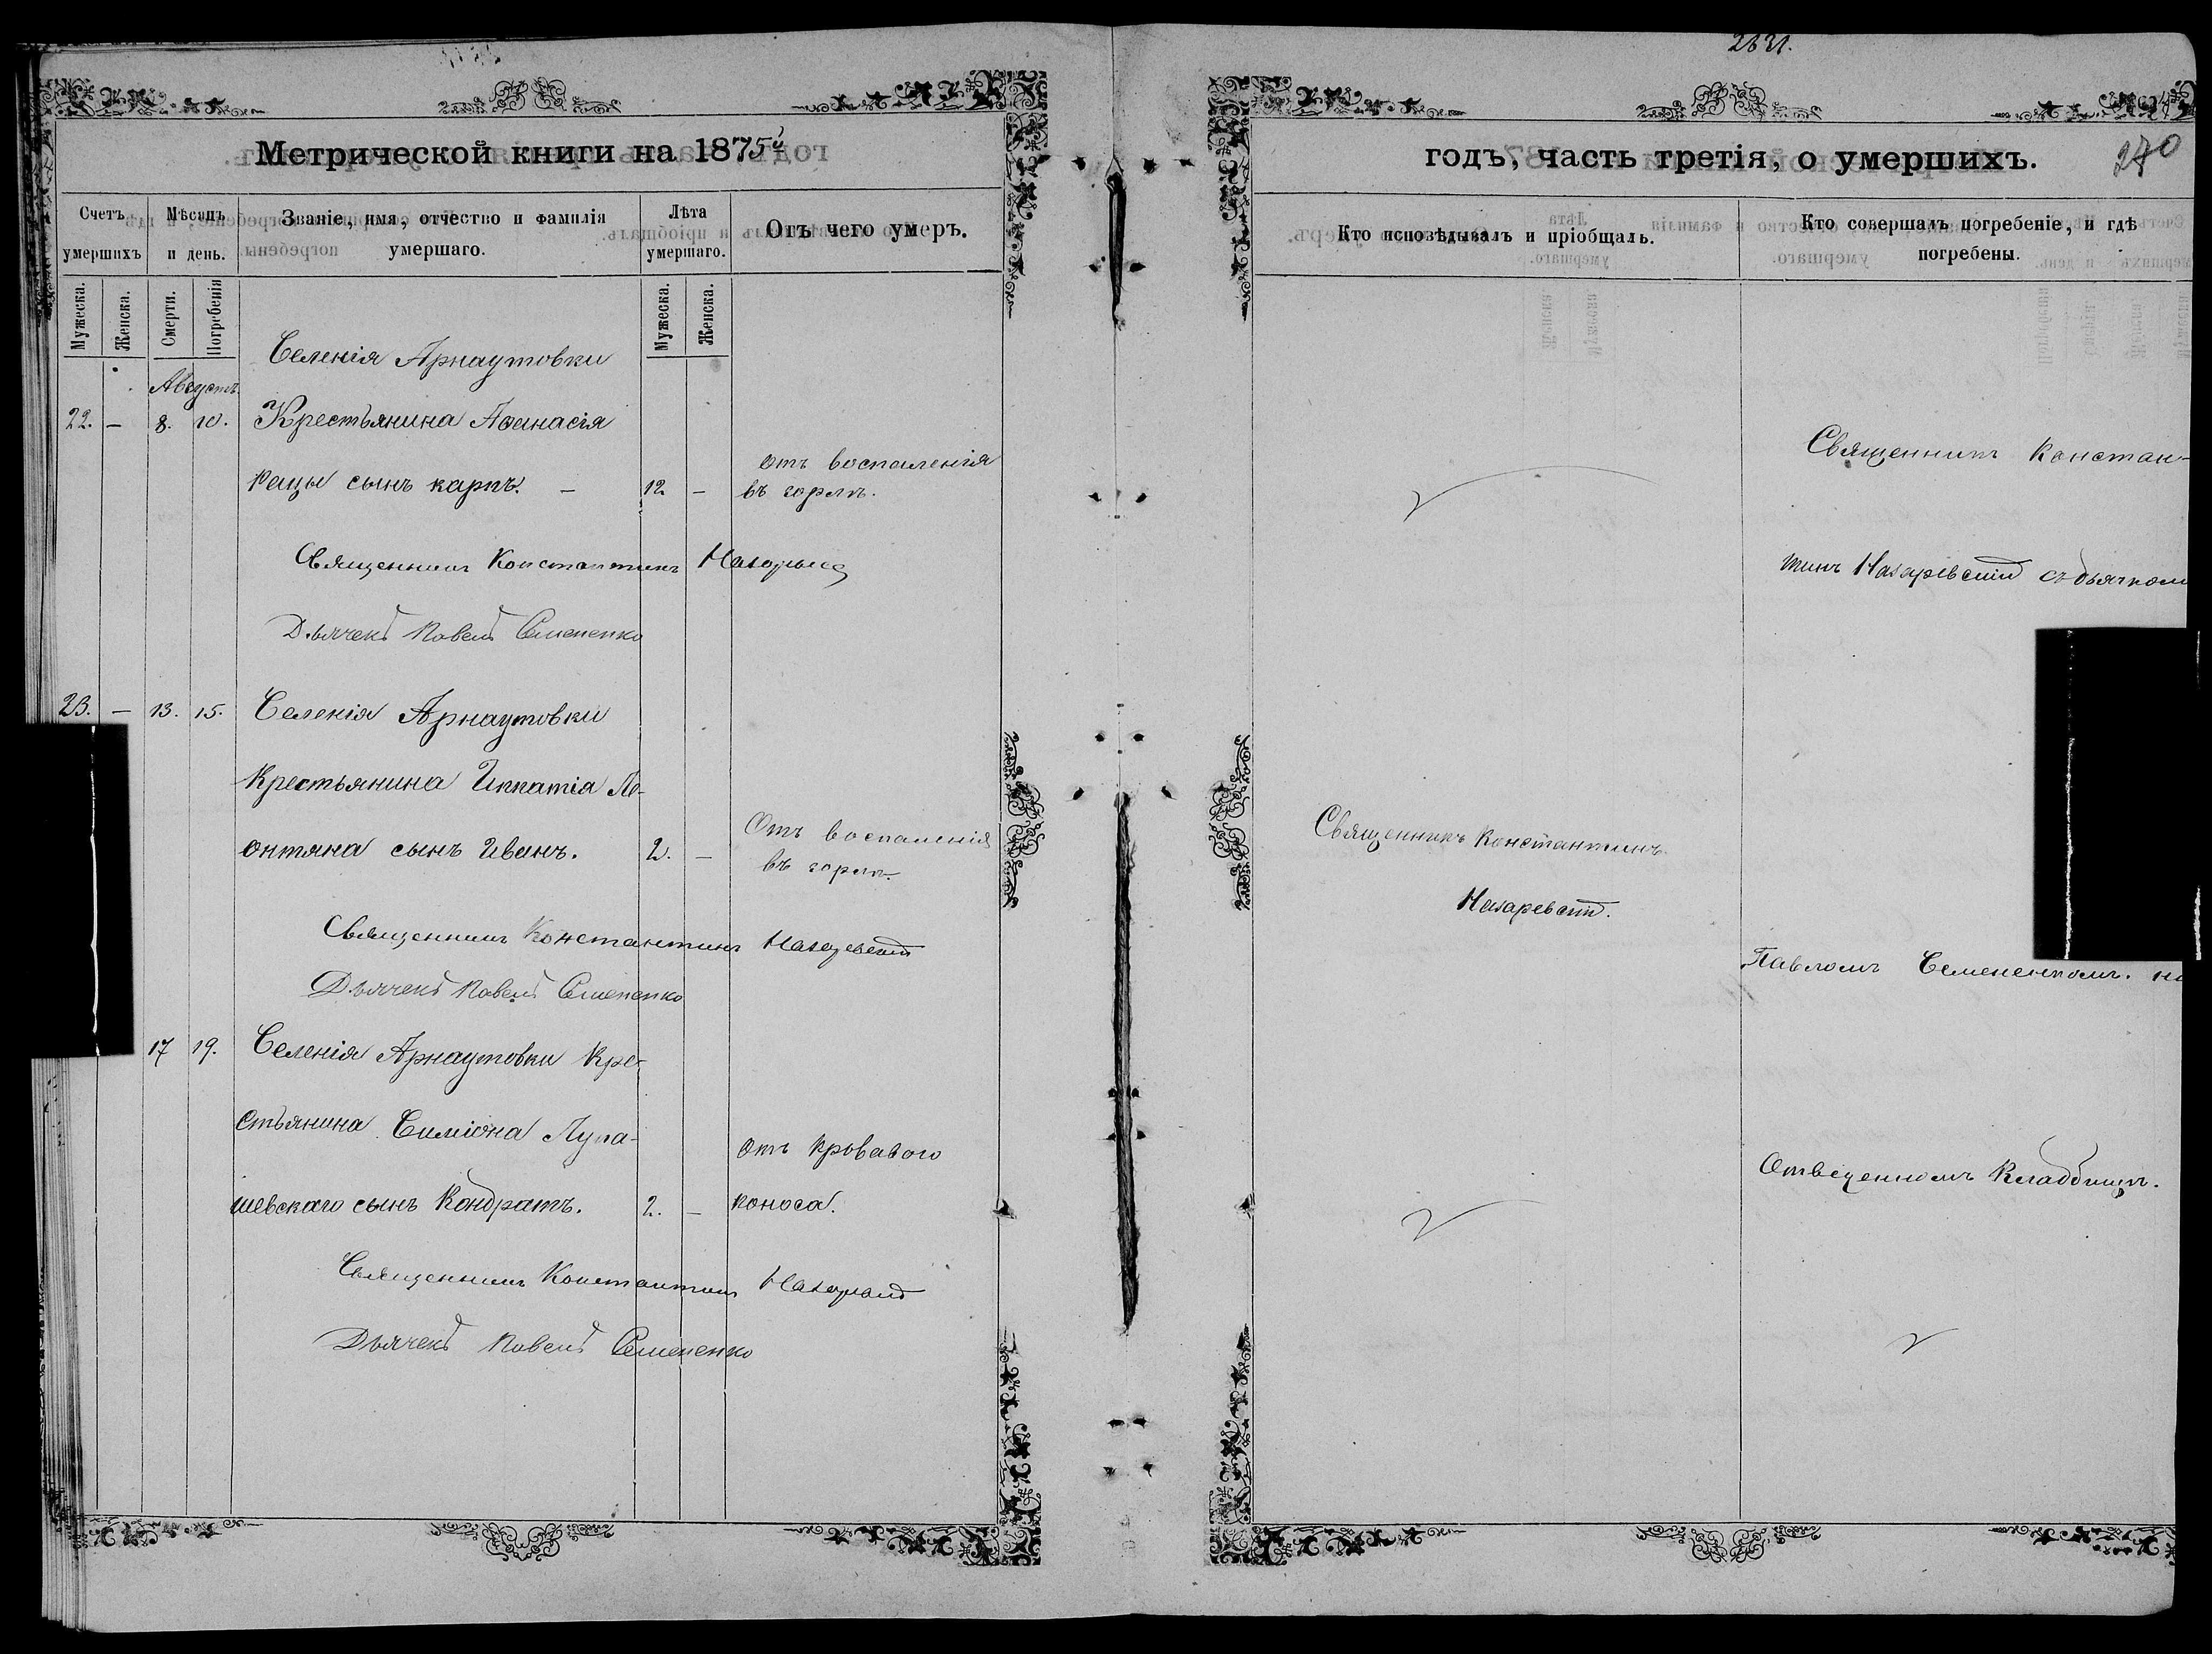 2631.
Метрической книги на 1875й
годъ, часть третія, о умершихъ.
270
Счетъ умершихъ
Мѣсяцъ и день.
Званіе, имя, отчество и фамилія умершаго.
Лѣта умершаго.
Отъ чего умеръ.
Кто исповѣдывалъ и пріобщалъ.
Кто совершалъ погребеніе, и гдѣ погребены.
Мужеска.
Женска.
Смерти.
Погребенія
Мужеска.
Женска.
Августъ
Селенія Арнаутовки
22. – 8. 10. Крестьянина Аѳанасія
Рацы сынъ Карпъ. – 12 –
отъ воспаленія
въ горлѣ.
Священникъ Константинъ
Дьячекъ Павелъ Семененко
23. – 13. 15. Селенія Арнаутовки
Крестьянина Ипатія Ле-
онтяна сынъ Иванъ. 2. –
Отъ воспаленія
въ горлѣ.
Священникъ Константинъ Назаревскій
Дьячекъ Павелъ Семененко
17 19. Селенія Арнаутовки Кре-
стьянина Симіона Лупа-
шевскаго сынъ Кондратъ. 2. –
отъ кроваваго
поноса.
Священникъ Константинъ
Дьячекъ Павелъ Семененко
Священникъ Константинъ
Назаревскій.
Священникъ Констан-
тинъ Назаревскій съ дьячком
Павломъ Семененкомъ. на
Отведенномъ Кладбищѣ.